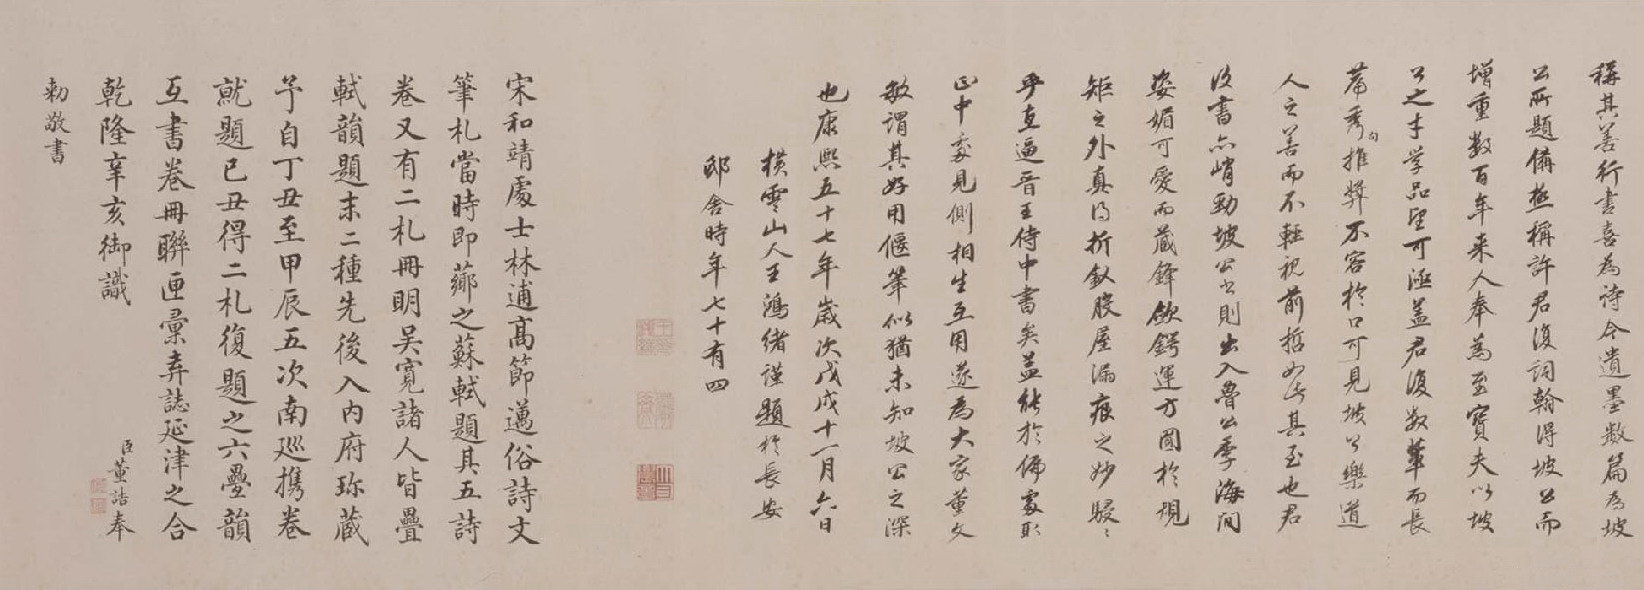 稱其善行書喜為詩今遺墨數篇為坡
公所題備極稱許君復詞翰得坡公而
增重數百年來人奉為至寶夫以坡
公之才學品望可涵蓋君復數輩而長
篇秀句推獎不容於口可見坡公樂道
人之善而不輕視前哲如此其至也君
復書亦峭勁坡公書則出入魯公季海間
姿媚可愛而藏鋒斂鍔運方圓於規
矩之外真得折釵股屋漏痕之妙駸〻
乎直逼晉王侍中書矣蓋能於偏處取
正中處見側相生互用遂為大家董文
敏謂其好用偃筆似猶未知坡公之深
也康熙五十七年歲次戊戌十一月六日
橫雲山人王鴻緒謹題於長安
邸舍時年七十有四
宋和靖處士林逋高節邁俗詩文
筆札當時即薌之蘇軾題其五詩
卷又有二札冊明吳寬諸人皆疊
軾韻題末二種先後入內府珍藏
予自丁丑至甲辰五次南巡攜卷
就題己丑得二札復題之六疊韻
互書卷冊聯匣彙弆誌延津之合
乾隆辛亥御識
臣董誥奉
勅敬書